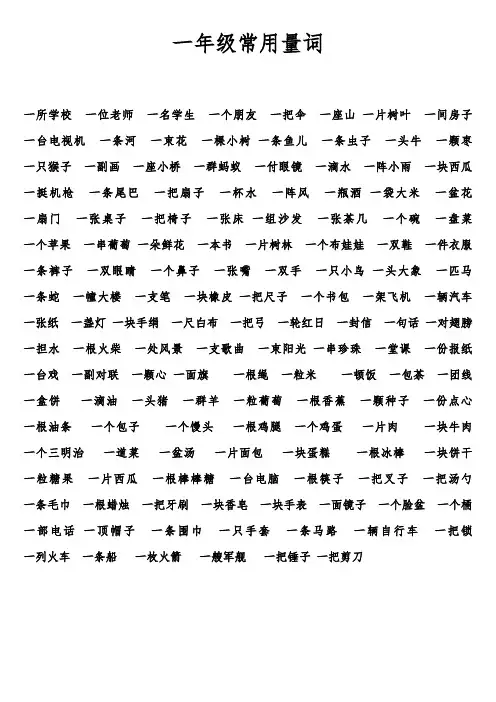 一年级常用量词
一所学校 一位老师 一名学生 一个朋友 一把伞 一座山 一片树叶 一间房子
一台电视机 一条河 一束花 一棵小树 一条鱼儿 一条虫子 一头牛 一颗枣
一只猴子 一副画 一座小桥 一群蚂蚁 一付眼镜 一滴水 一阵小雨 一块西瓜
一挺机枪 一条尾巴 一把扇子 一杯水 一阵风 一瓶酒 一袋大米 一盆花
一扇门 一张桌子 一把椅子 一张床 一组沙发 一张茶几 一个碗 一盘菜
一个苹果 一串葡萄 一朵鲜花 一本书 一片树林 一个布娃娃 一双鞋 一件衣服
一条裤子 一双眼睛 一个鼻子 一张嘴 一双手 一只小鸟 一头大象 一匹马
一条蛇 一幢大楼 一支笔 一块橡皮 一把尺子 一个书包 一架飞机 一辆汽车
一张纸 一盏灯 一块手绢 一尺白布 一把弓 一轮红日 一封信 一句话 一对翅膀
一担水 一根火柴 一处风景 一支歌曲 一束阳光 一串珍珠 一堂课 一份报纸
一台戏 一副对联 一颗心 一面旗 一根绳 一粒米 一顿饭 一包茶 一团线
一盒饼 一滴油 一头猪 一群羊 一粒葡萄 一根香蕉 一颗种子 一份点心
一根油条 一个包子 一个馒头 一根鸡腿 一个鸡蛋 一片肉 一块牛肉
一个三明治 一道菜 一盆汤 一片面包 一块蛋糕 一根冰棒 一块饼干
一粒糖果 一片西瓜 一根棒棒糖 一台电脑 一根筷子 一把叉子 一把汤勺
一条毛巾 一根蜡烛 一把牙刷 一块香皂 一块手表 一面镜子 一个脸盆 一个桶
一部电话 一顶帽子 一条围巾 一只手套 一条马路 一辆自行车 一把锁
一列火车 一条船 一枚火箭 一艘军舰 一把锤子 一把剪刀